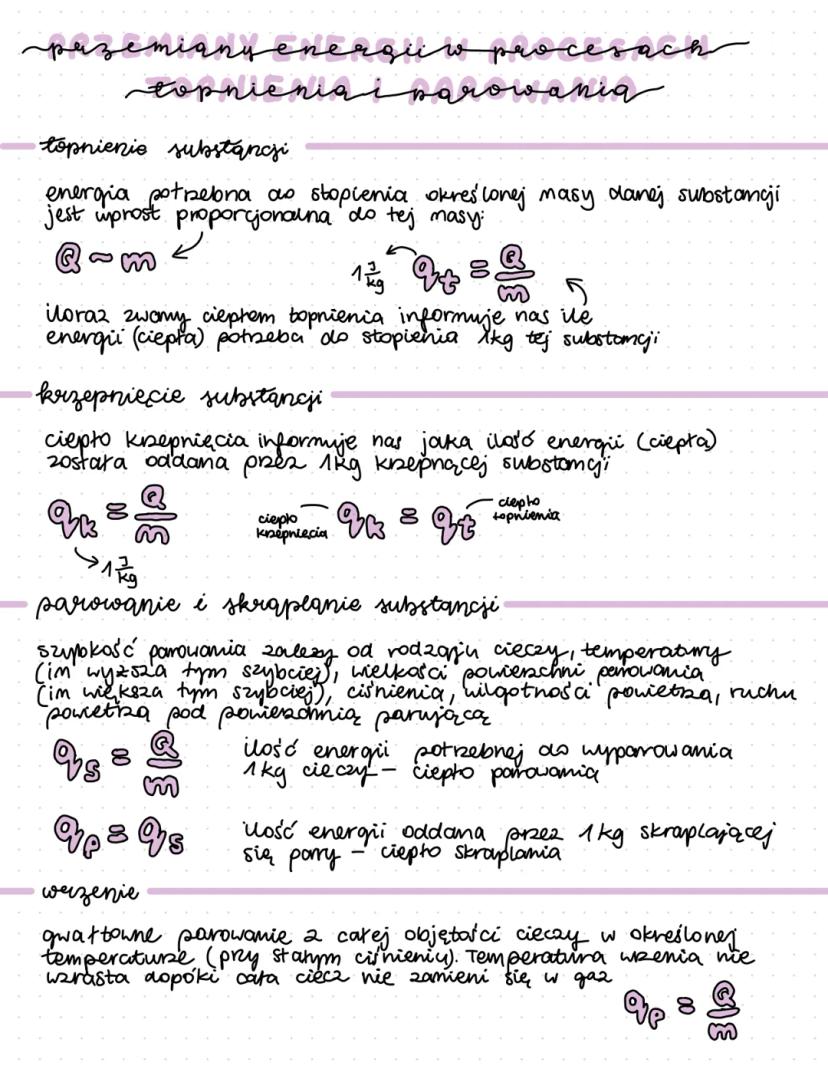 przemiany energii w procesach
topnienia i parowania
topnienie substancji
energia potrzebna do stopienia określonej masy danej substancji
jest wprost proporcjonalna do tej masy:
Q ~ m
1 J/kg
q_t = Q/m
iloraz zwany ciepłem topnienia informuje nas ile
energii (ciepła) potrzeba do stopienia 1kg tej substancji
krzepnięcie substancji
ciepło krzepnięcia informuje nas jaka ilość energii (ciepła)
została oddana przez 1kg krzepnącej substancji
q_k = Q/m
ciepło
krzepnięcia
q_k = q_t
ciepło
topnienia
1 J/kg
parowanie i skraplanie substancji
szybkość parowania zależy od rodzaju cieczy, temperatury
(im wyższa tym szybciej), wielkości powierzchni parowania
(im większa tym szybciej), ciśnienia, wilgotności powietrza, ruchu
powietrza pod powierzchnią parującą
q_s = Q/m
ilość energii potrzebnej do wyparowania
1kg cieczy – ciepło parowania
q_p = q_s
ilość energii oddana przez 1kg skraplającej
się pary – ciepło skraplania
wrzenie
gwałtowne parowanie z całej objętości cieczy w określonej
temperaturze (przy stałym ciśnieniu). Temperatura wrzenia nie
wzrasta dopóki cała ciecz nie zamieni się w gaz
q_p = Q/m